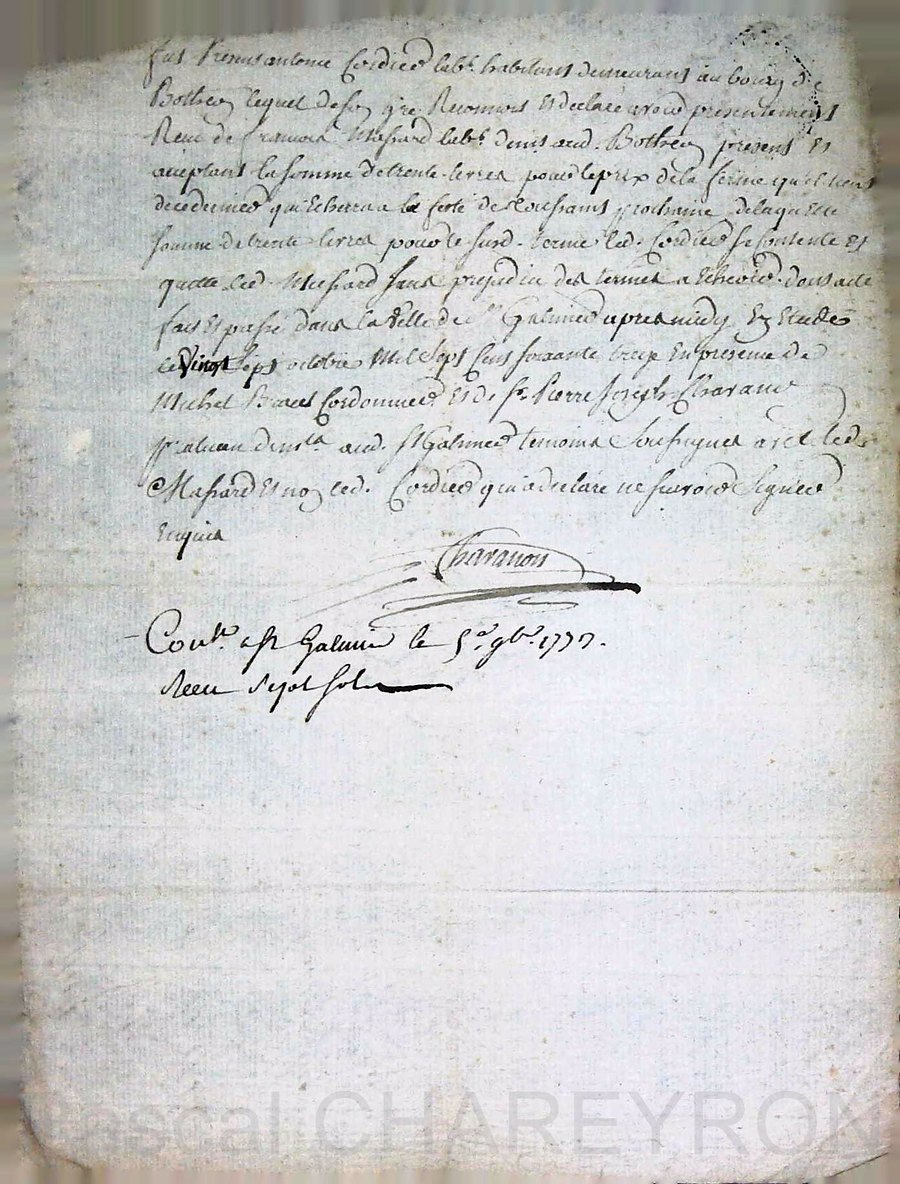 fut Present antoine Cordier lab.r habitant demeurant au bourg de
Botheon lequel de son gré Reconnoit Et declare avoir presentement
Recu de francois Massard lab.r demt aud. Botheon present Et
acceptant la somme de trente livres pour le prix de la ferme qu'il tient
qui Echerra a la fete de toussaint prochaine delaquelle
somme de trente livres pour le susd. terme led. Cordier se contente Et
quitte led. Massard sans prejudice des termes a Echeoir dont acte
fait Et passé dans la ville de St Galmier apres midy Ez Etudes
le Vingt sept octobre Mil Sept Cent soixante treize En presence de
Michel Cordonnier Et de Sr Pierre Joseph
aud. St Galmier temoins Soussignes avec led.
Massard Et non led. Cordier qui a declaré ne scavoir Signer
Enquis
Charanon
Con.le a St Galmier le 5.e 9bre 177
Recu sept sols
Pascal CHAREYRON